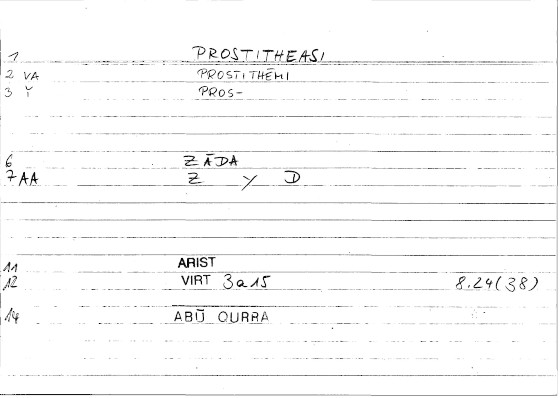 1 PROSTITHEASI
2 VA PROSTITHĒMI
3 Y PROS-
6 ZĀDA
7 AA Z Y D
11 ARIST
12 VIRT 3a15 8.24(38)
14 ABŪ QURRA